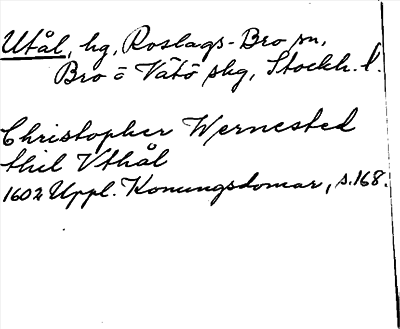 Utål, hg, Roslags-Bro sn,
Bro o Vätö skg, Stockh. l.
Christopher Wernested
thil Vthål
1602 Uppl. Konungsdomar, s.168.